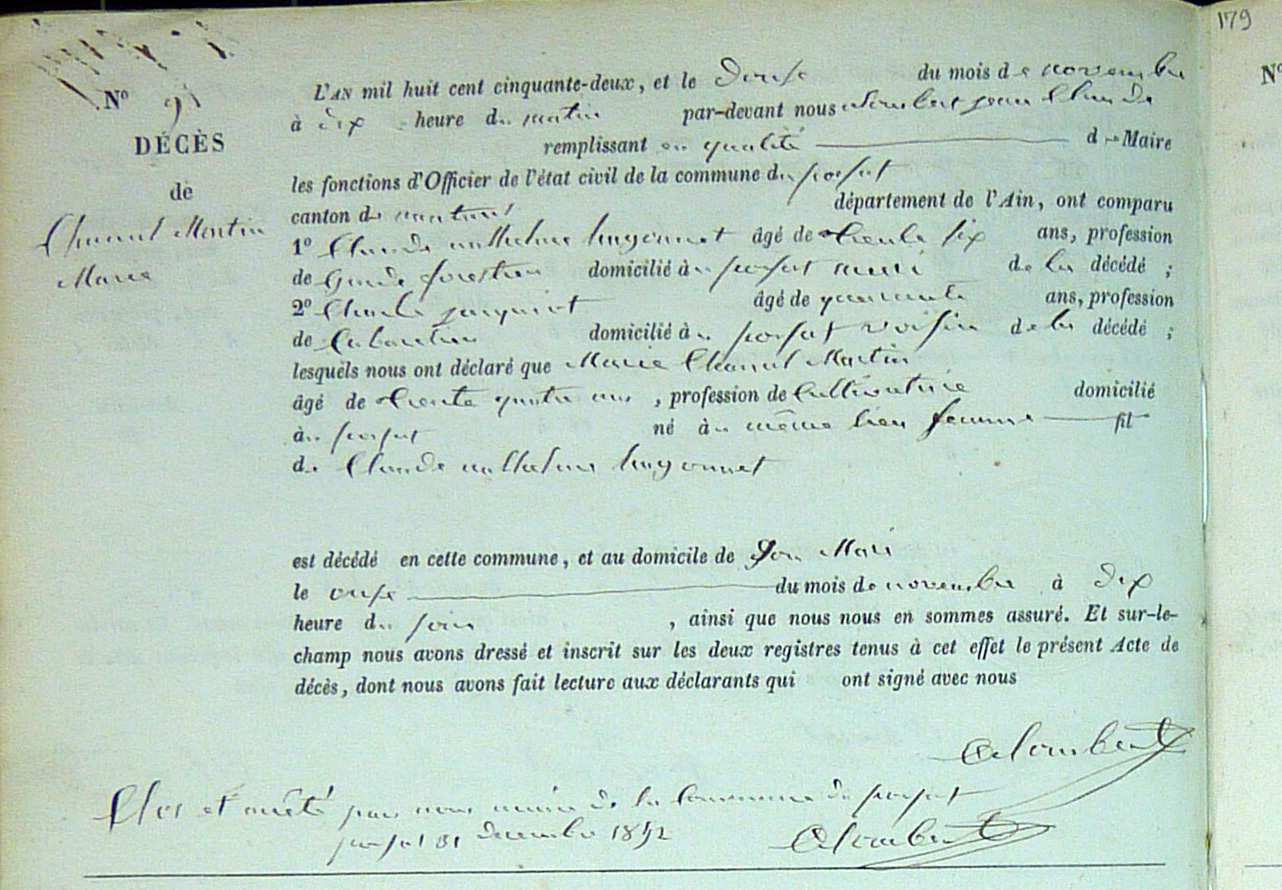 179
L'AN mil huit cent cinquante-deux, et le Douse du mois de novembre
N° 9
à dix heure du matin par-devant nous jean Claude
DÉCÈS
remplissant en qualité de Maire
de
les fonctions d'Officier de l'état civil de la commune du
Chanel Martin
canton de département de l'Ain, ont comparu
1° Claude anthelme hugonnet âgé de trente six ans, profession
Marie
de Garde forestier domicilié à mari de la décédé ;
2° Charle jacquiot âgé de quarante ans, profession
de Cabaretier domicilié à voisin de la décédé ;
lesquels nous ont déclaré que Marie Chanel Martin
âgé de trente quatre ans , profession de Cultivatrice domicilié
à né au même lieu femme fil
de Claude anthelme hugonnet
est décédé en cette commune, et au domicile de Son Mari
le onse du mois de novembre à dix
heure du soir , ainsi que nous nous en sommes assuré. Et sur-le-
champ nous avons dressé et inscrit sur les deux registres tenus à cet effet le présent Acte de
décès, dont nous avons fait lecture aux déclarants qui ont signé avec nous
Clos et arrêté par nous maire de la Commune de
31 decembre 1852
N°